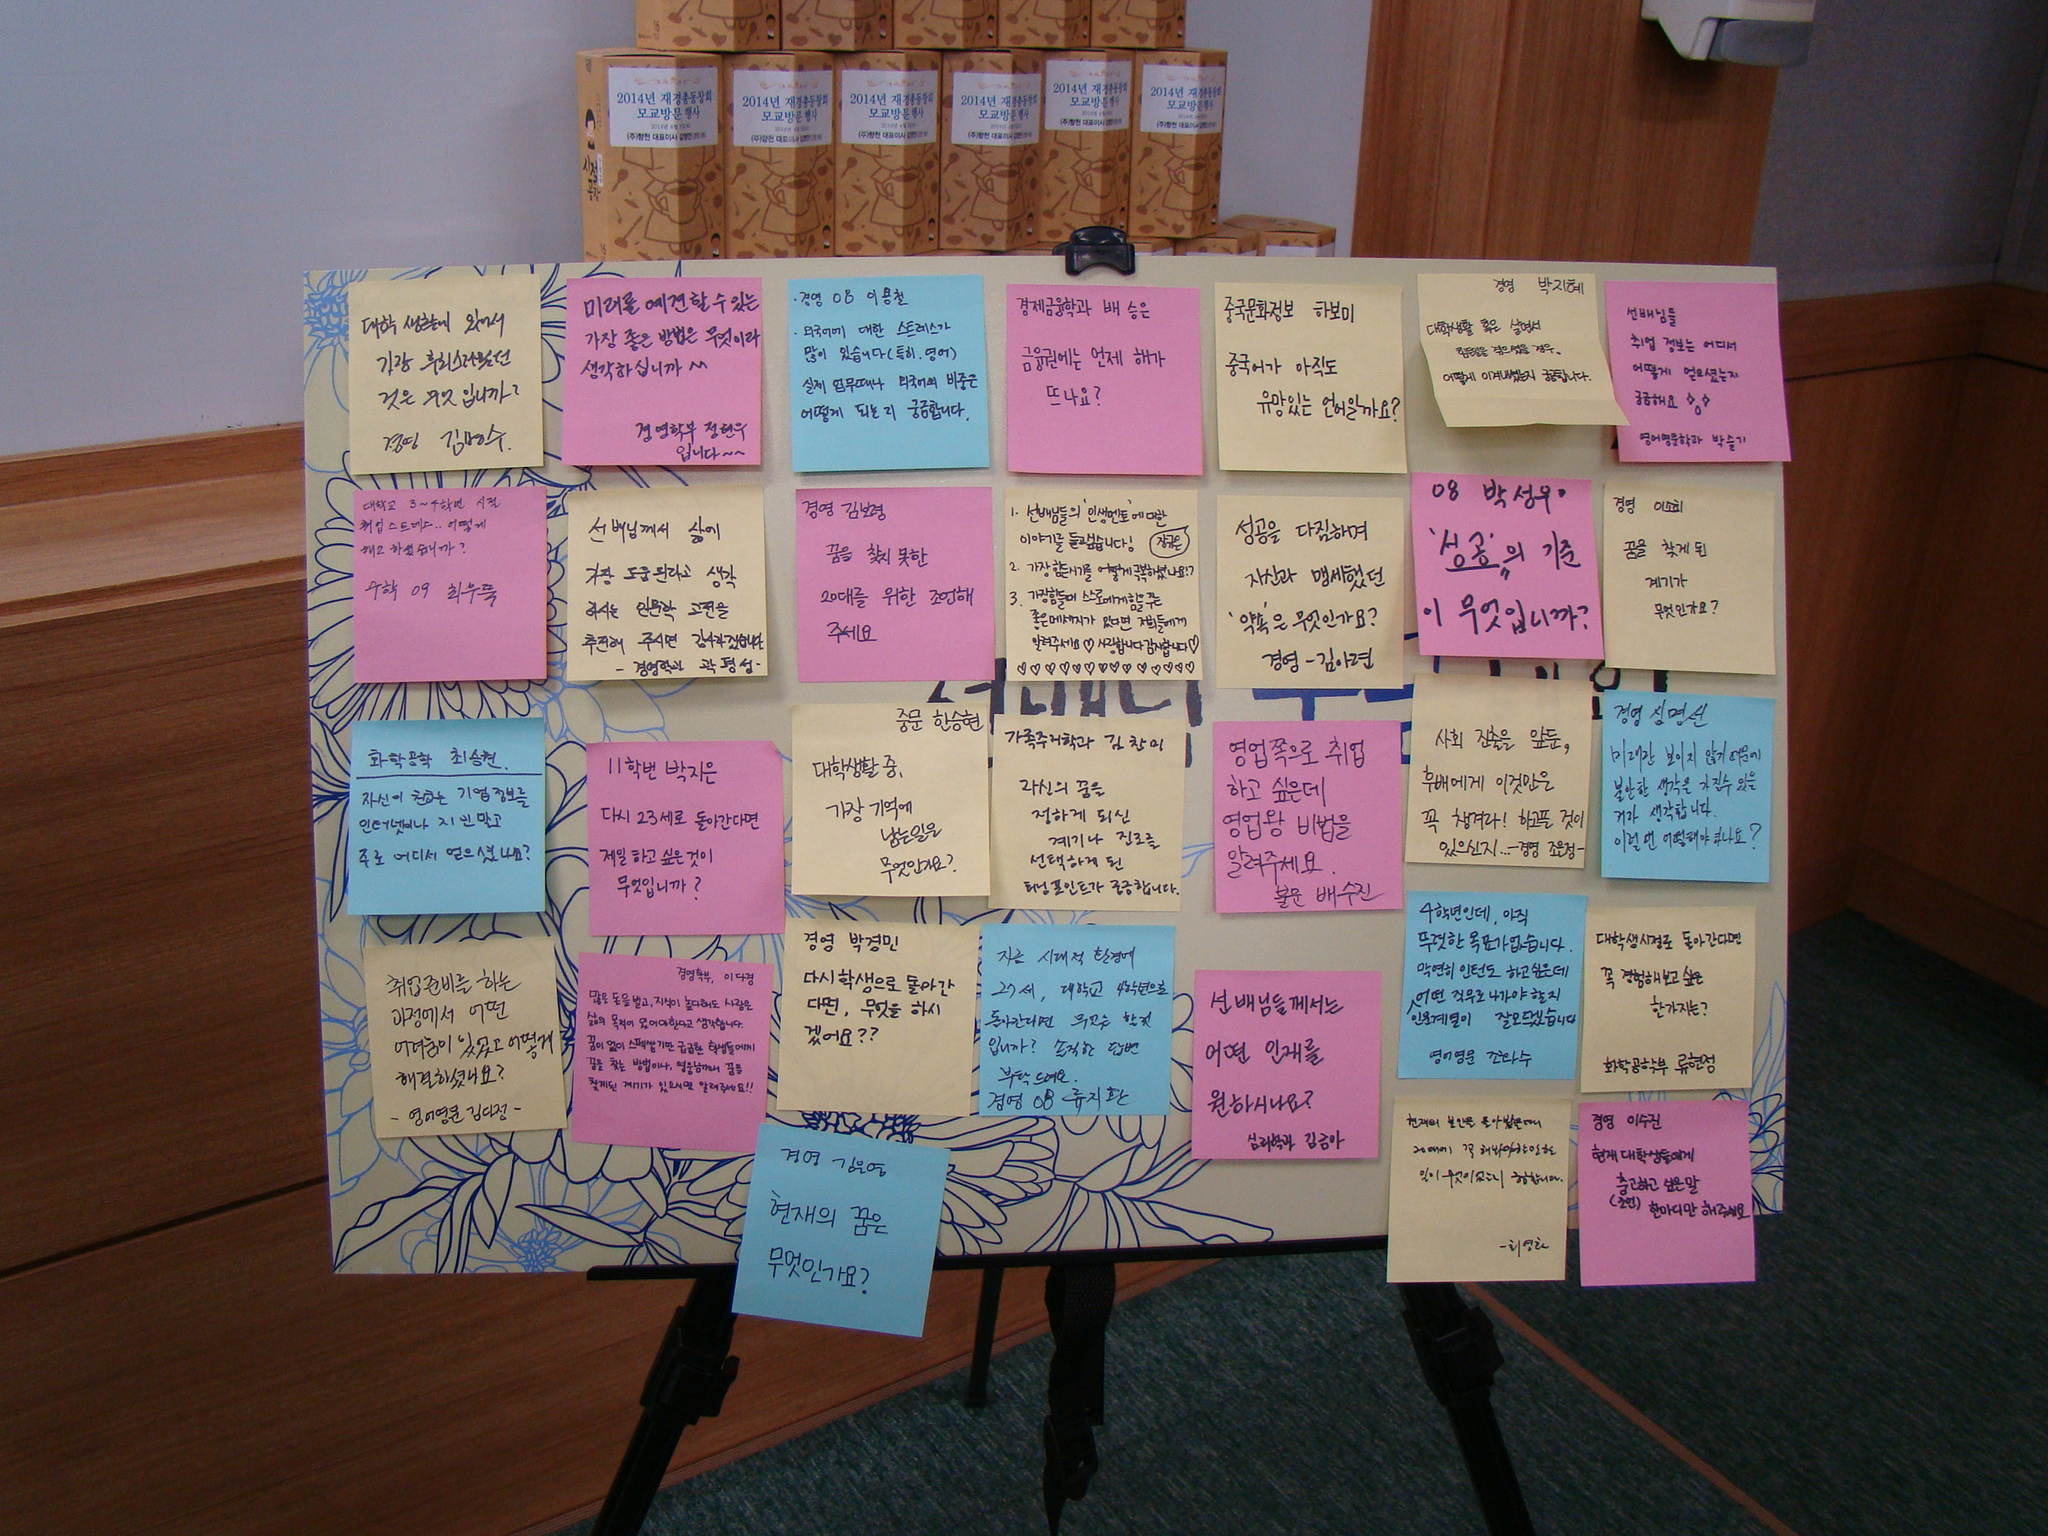 2014년 재경총동창회
모교방문행사
(주)향천 대표이사
2014년 재경총동창회
모교방문행사
(주)향천 대표이사
2014년 재경총동창회
모교방문행사
(주)향천 대표이사
2014년 재경총동창회
모교방문행사
(주)향천 대표이사
2014년 재경총동창회
모교방문행사
(주)향천 대표이사
2014년 재경총동창회
모교방문행사
(주)향천 대표이사
대학생활에 있어서
가장 후회스러웠던
것은 무엇입니까?
경영
미래를 예견할 수 있는
가장 좋은 방법은 무엇이라
생각하십니까 ^^
경영학부 정현우
입니다~~
·경영 08 이용철
·외국어에 대한 스트레스가
많이 있습니다(특히.영어)
실제 업무때나 외국어의 비중은
어떻게 되는지 궁금합니다.
경제금융학과 배승은
금융권에는 언제 해가
뜨나요?
중국문화정보 하보미
중국어가 아직도
유망있는 언어일까요?
경영 박지혜
대학생활 혹은 살면서
어떻게 이겨내셨는지 궁금합니다.
선배님들
취업 정보는 어디서
어떻게 얻으셨는지
궁금해요
영어영문학과 박슬기
대학교 3~4학년 시절
취업 스트레스.. 어떻게
해소 하셨습니까?
수학 09
선배님께서 삶에
가장 도움된다고 생각
하시는 인문학 고전을
추천해 주시면 감사하겠습니다
-경영학과 곽평성-
경영 김보경
꿈을 찾지 못한
20대를 위한 조언해
주세요
1. 선배님들의 '인생멘토'에 대한
이야기를 듣고싶습니다!
2. 가장 힘든시기를 어떻게 극복하셨나요!?
3. 가장힘들때 스스로에게 힘을 주는
좋은메세지가 있다면 저희들에게
알려주세요♡ 사랑합니다 감사합니다♡
♡♡♡♡♡♡♡♡♡♡♡♡♡
성공을 다짐하며
자신과 맹세했던
'약속'은 무엇인가요?
경영-김아련
08 박성우.
'성공'의 기준
이 무엇입니까?
경영
꿈을 찾게 된
계기가
무엇인가요?
화학공학 최승현.
자신이 원하는 기업정보를
인터넷이나 지인말고
주로 어디서 얻으셨나요?
11학번 박지은
다시 23세로 돌아간다면
제일 하고싶은것이
무엇입니까?
중문 한승현
대학생활 중,
가장 기억에
남는일은
무엇인가요?
가족주거학과 김찬미
자신의 꿈을
정하게 되신
계기나 진로를
선택하게 된
터닝포인트가 궁금합니다.
영업쪽으로 취업
하고 싶은데
영업왕 비법을
알려주세요.
불문 배수진
사회 진출을 앞둔,
후배에게 이것만은
꼭 챙겨라! 하고픈 것이
있으신지...-경영 조은정-
경영 심명선
미래가 보이지 않기 때문에
불안한 생각을 가질수 있을
거라 생각합니다.
이럴 땐 어떻해야 하나요?
취업준비를 하는
과정에서 어떤
어려움이 있었고 어떻게
해결하셨나요?
-영어영문 김다정-
경영학부, 이다경
많은 돈을 벌고, 지식이 높다해도 사람은
삶의 목적이 있어야한다고 생각합니다.
꿈이 없이 스펙쌓기만 급급한 학생들에게
꿈을 찾는 방법이나,
찾게된 계기가 있으시면 알려주세요!!
경영 박경민
다시 학생으로 돌아간
다면, 무엇을 하시
겠어요??
지금 시대적 환경에
27세, 대학교 4학년으로
돌아간다면 무엇을 할것
입니까? 솔직한 답변
부탁드려요.
경영 08 류지환
선배님들께서는
어떤 인재를
원하시나요?
심리학과 김금아
4학년인데, 아직
뚜렷한 목표가없습니다.
막연히 인턴도 하고싶은데
어떤 직무로 나가야 할지
인문계열이 잘모르겠습니다
영어영문
대학생시절로 돌아간다면
꼭 경험해보고 싶은
한가지는?
화학공학부 류현정
경영 김은영
현재의 꿈은
무엇인가요?
현재의
20대에 꼭 해봐야하는
일이 무엇이었는지 궁합니다.
경영 이수진
현재 대학생들에게
충고하고 싶은말
(조언) 한마디만 해주세요